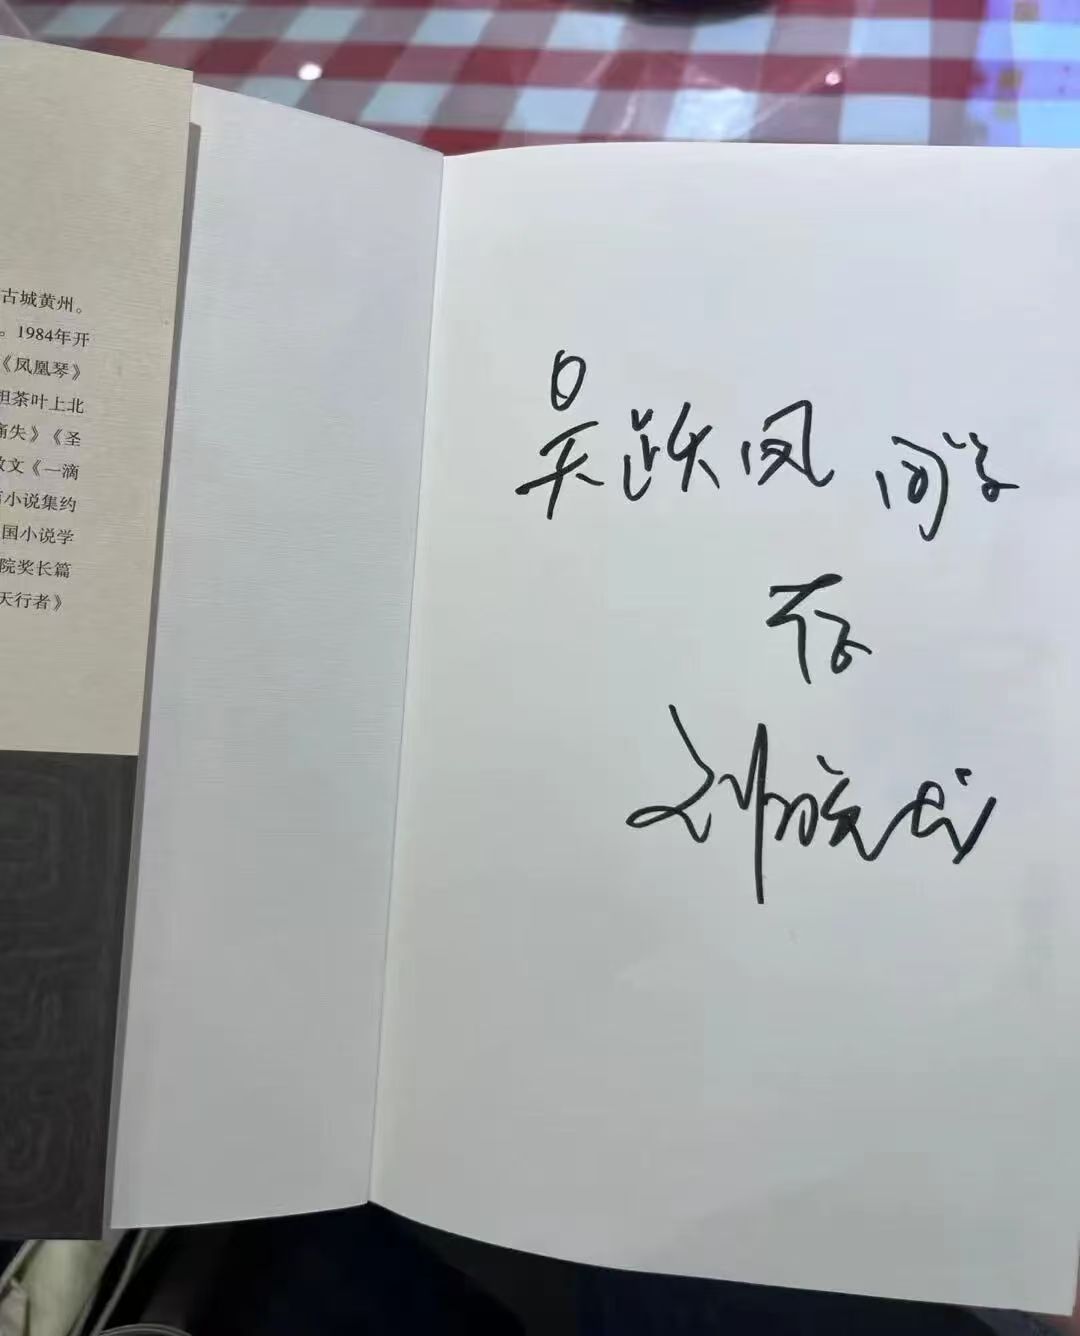 古城黄州。
。1984年开
《凤凰琴》
担茶叶上北
痛失》《圣
散文《一滴
小说集约
国小说学
院奖长篇
天行者》
吴跃凤同学
存
刘醒龙